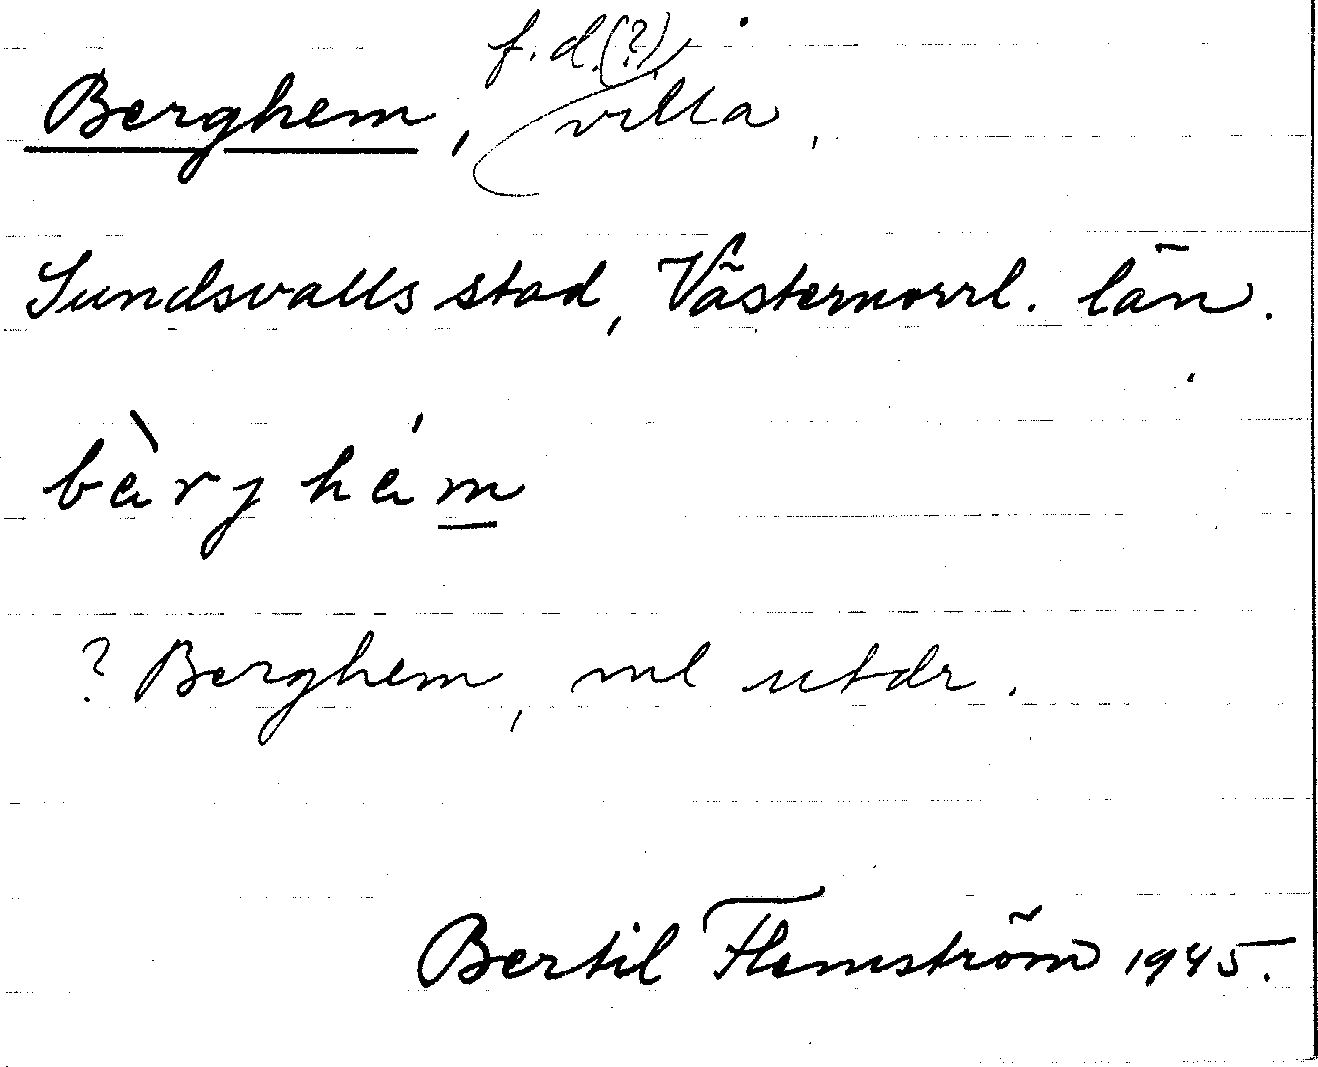 Berghem, f.d.(?) villa,
Sundsvalls stad, Västernorrl. län.
bàrjhám
? Berghem, ml utdr.
Bertil Flemström 1945.